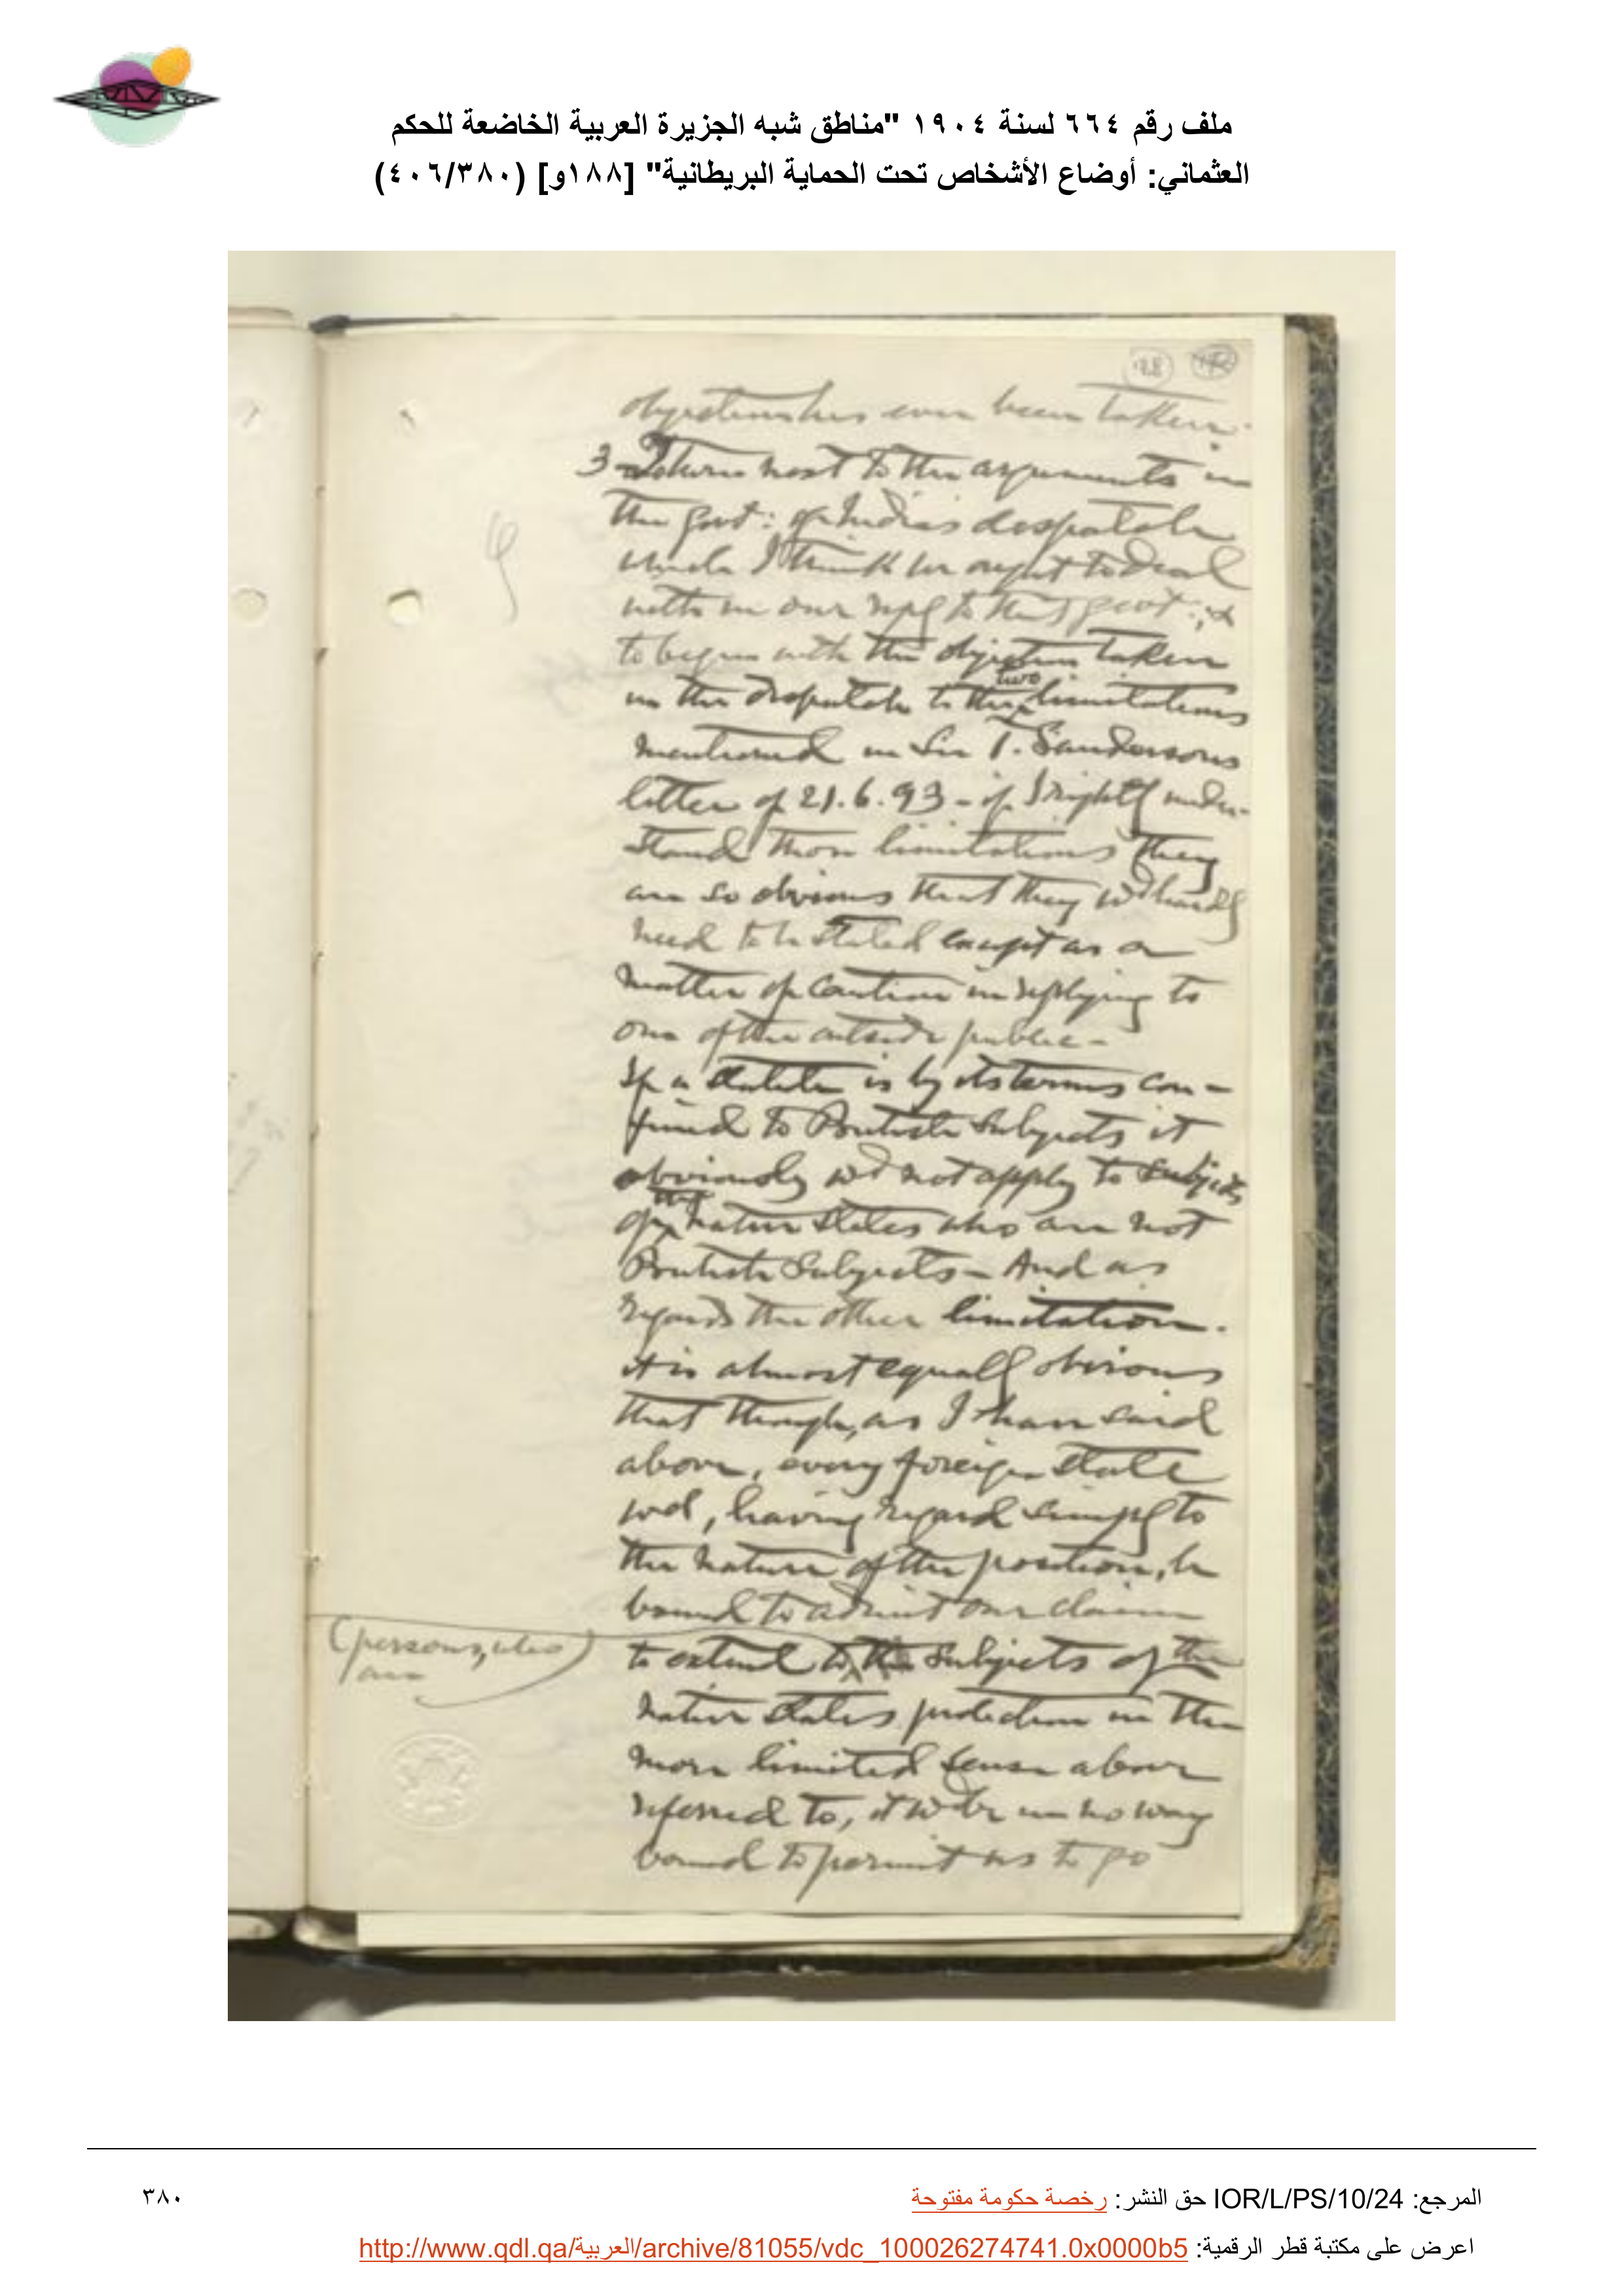 ملف رقم ٦٦٤ لسنة ١٩٠٤ "مناطق شبه الجزيرة العربية الخاضعة للحكم
العثماني: أوضاع الأشخاص تحت الحماية البريطانية" [١٨٨و] (٤٠٦/٣٨٠)
188
objection has ever been taken.
3 - I turn next to the arguments in
the Govt: of India's despatch
which I think we ought to deal
with in our reply to that govt:, &
to begin with the objection taken
in the despatch to the two limitations
mentioned in Sir T. Sanderson's
letter of 21.6.93 - if I rightly under-
stand those limitations they
are so obvious that they wd hardly
need to be stated except as a
matter of caution in replying to
one of the outside public -
If a statute is by its terms con-
fined to British Subjects it
obviously wd not apply to subjects
of the native states who are not
British Subjects - And as
regards the other limitation.
it is almost equally obvious
that though, as I have said
above, every foreign state
wd, having regard simply to
the nature of the position, be
bound to admit our claim
(persons, who are)
to extend to subjects of the
native states protection in the
more limited sense above
referred to, it wd be in no way
bound to permit us to go
المرجع: IOR/L/PS/10/24 حق النشر: رخصة حكومة مفتوحة
٣٨٠
اعرض على مكتبة قطر الرقمية: http://www.qdl.qa/العربية/archive/81055/vdc_100026274741.0x0000b5